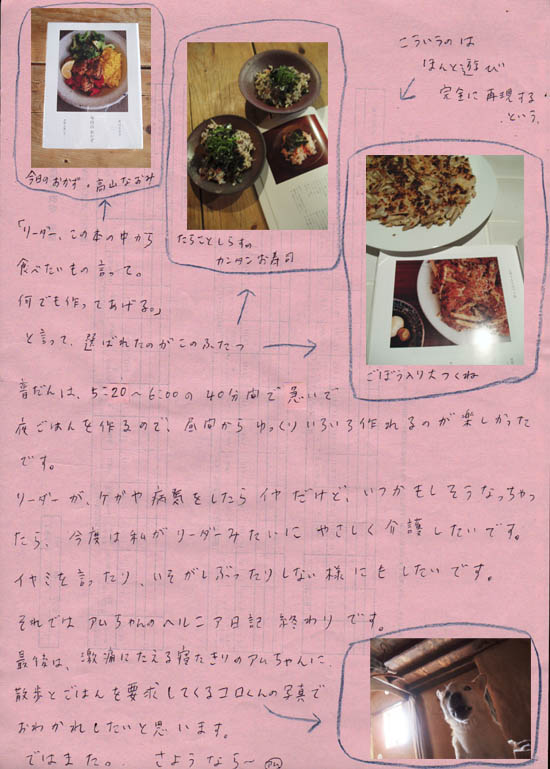 こういうのは
ほんと遊び
完全に再現する
という。
今日のおかず・高山なおみ
たらことしらすの
カンタンお寿司
ごぼう入り大つくね
「リーダー、この本の中から
食べたいもの言って。
何でも作ってあげる。」
と言って、選ばれたのがこのふたつ
普だんは、5:20〜6:00の40分間で急いで
夜ごはんを作るので、昼間からゆっくりいろいろ作れるのが楽しかった
です。
リーダーが、ケガや病気をしたらイヤだけど、いつかもしそうなっちゃっ
たら、今度は私がリーダーみたいにやさしく介護したいです。
イヤミを言ったり、いそがしぶったりしない様にもしたいです。
それではアムちゃんのヘルニア日記 終わりです。
最後は、激痛にたえる寝たきりのアムちゃんに、
散歩とごはんを要求してくるコロくんの写真で
おわかれしたいと思います。
ではまた。 さようなら〜